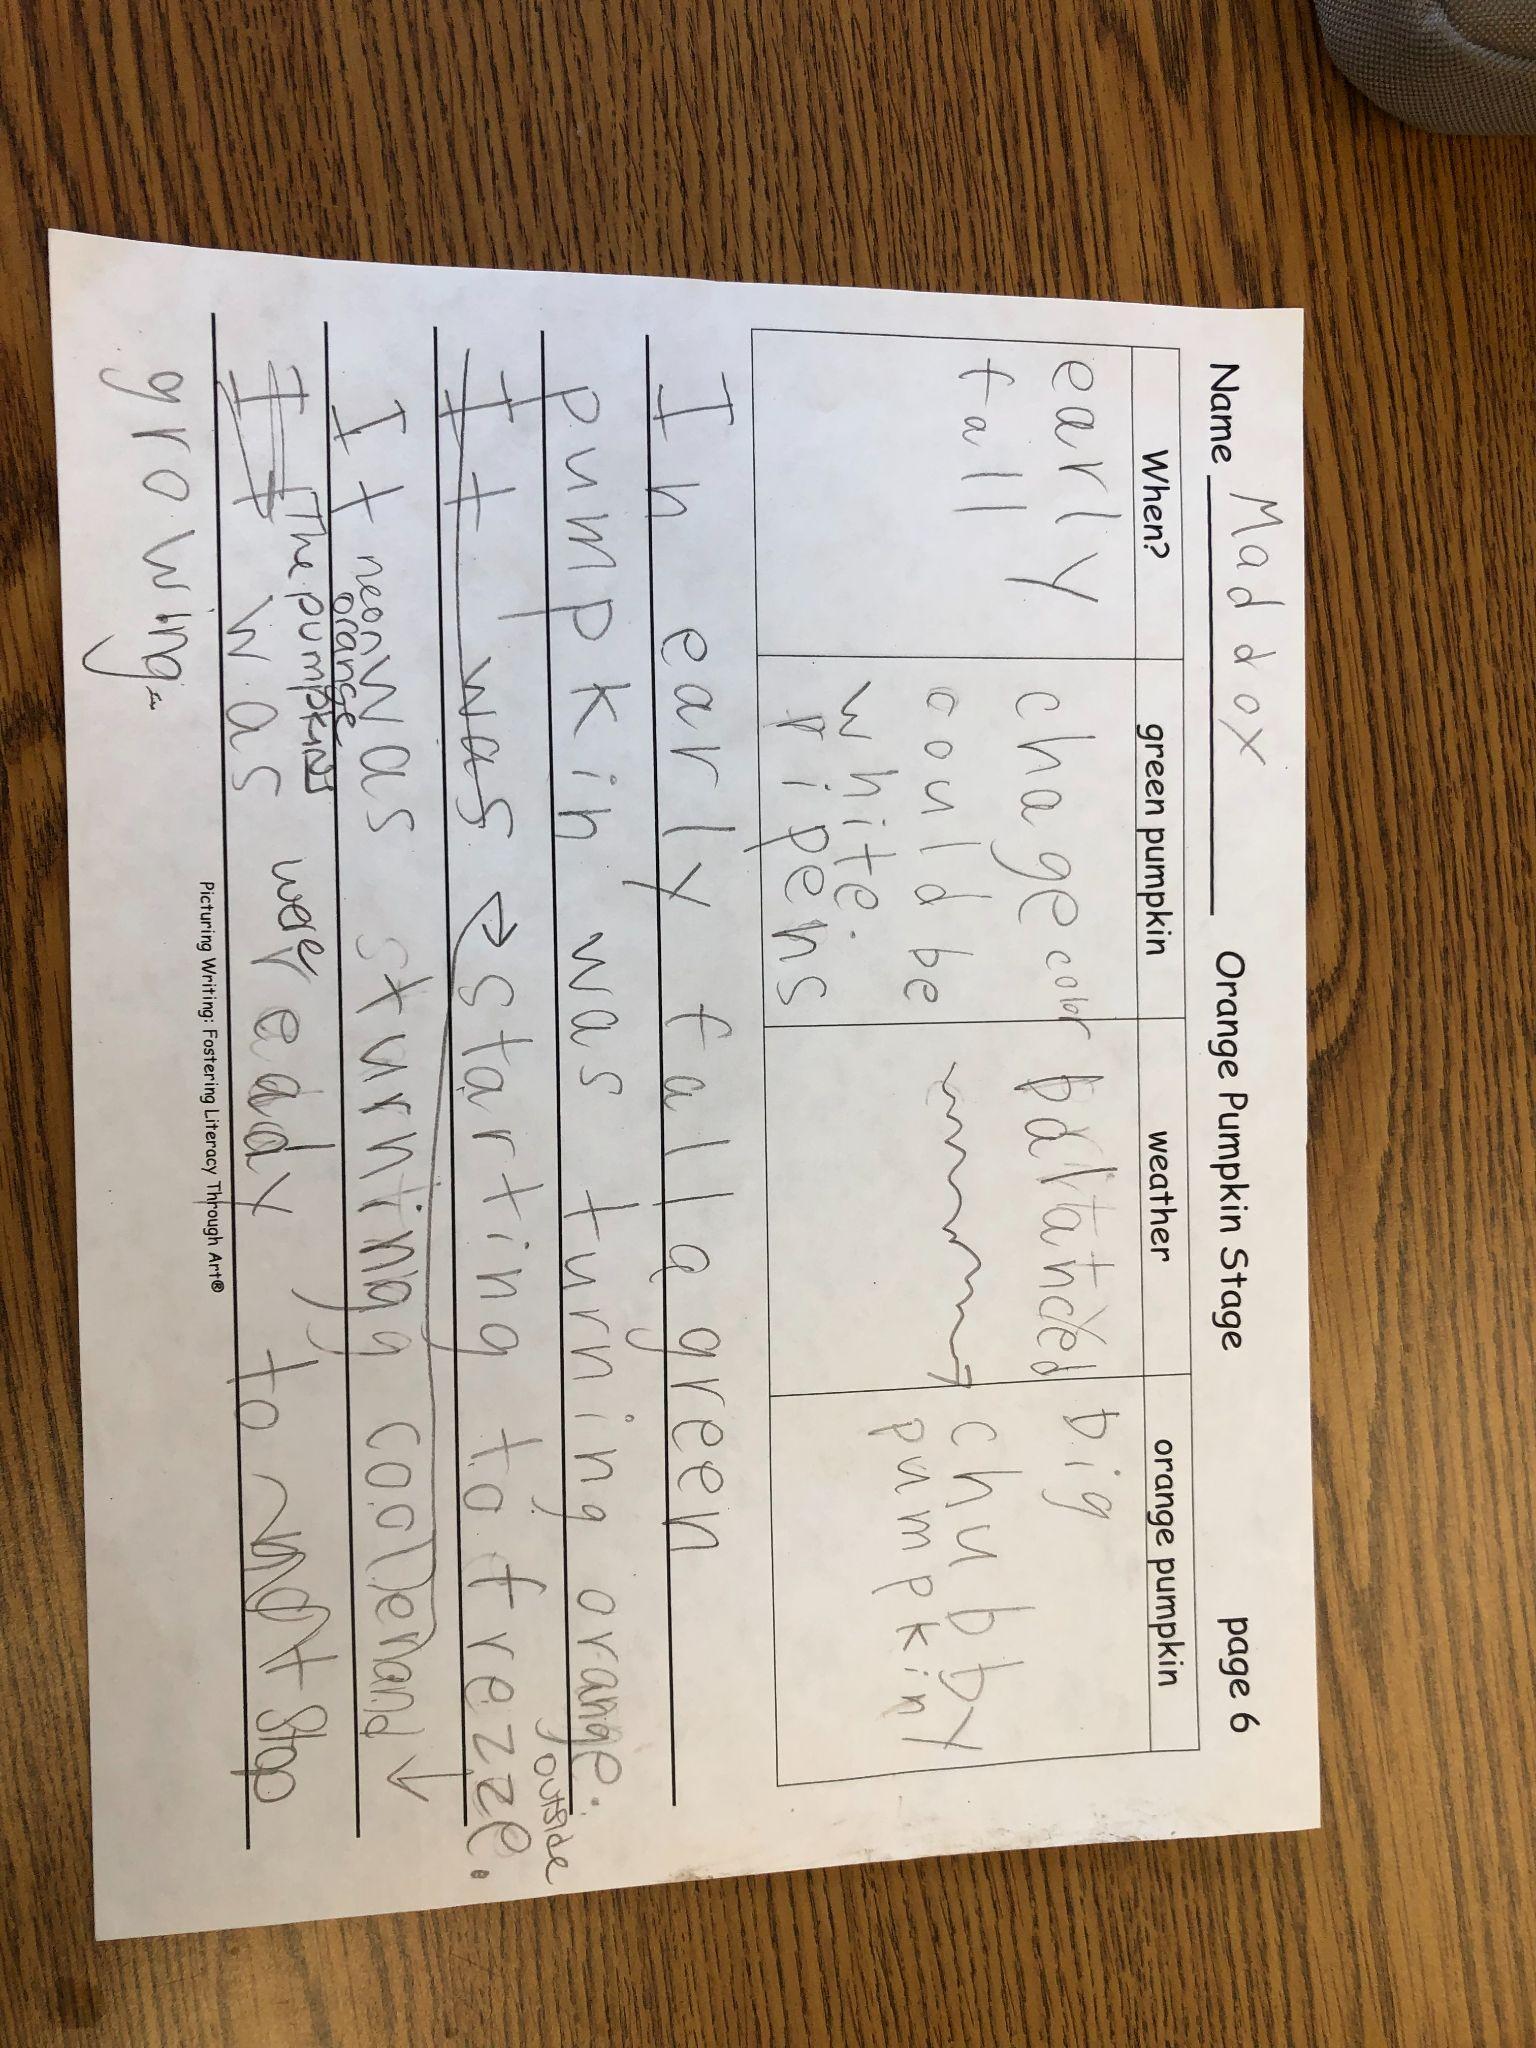 Name Maddox Orange Pumpkin Stage page 6
When? green pumpkin weather orange pumpkin
early
fall
chage color
could be
white.
ripens
big
chubby
pumpkin
In early fall a green
pumpkin was turning orange.
outside
It was starting to frezze.
It was sturning cool and
neon
orange
The pumpkins were
It was ready to not stop
growing.
Picturing Writing: Fostering Literacy Through Art®